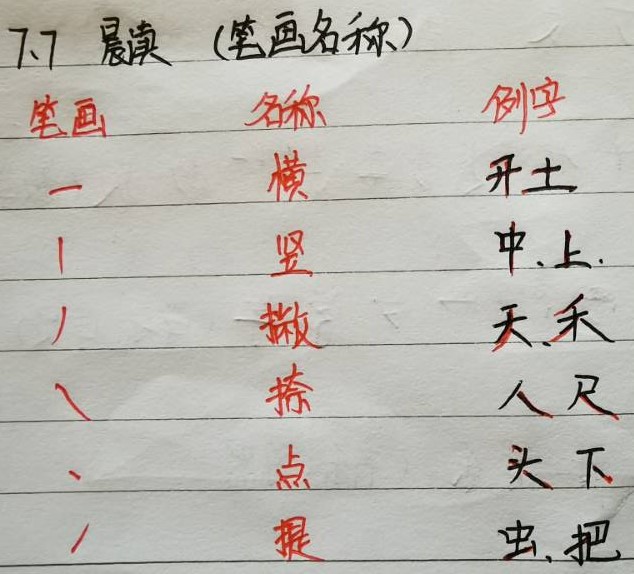 7.7 晨读 (笔画名称)
笔画 名称 例字
一 横 开土
丨 竖 中、上.
丿 撇 天、禾
㇏ 捺 人 尺
丶 点 头 下
㇀ 提 虫、把